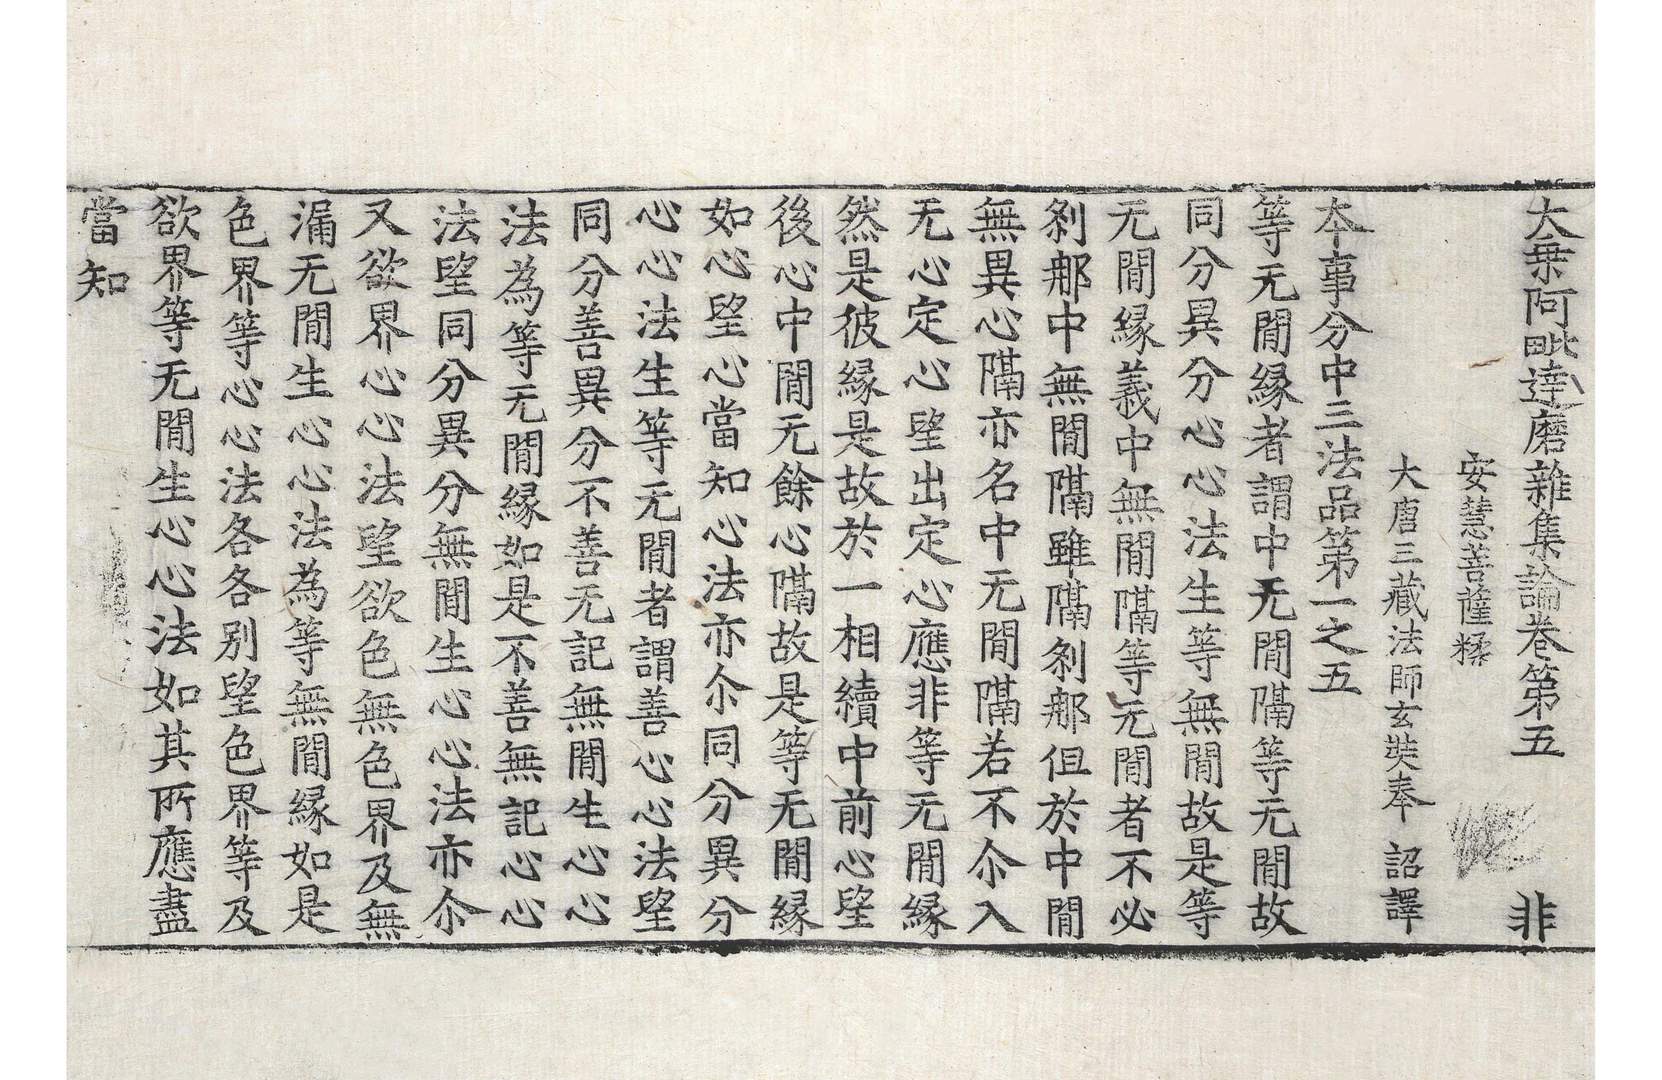 大乗阿毗達磨雜集論卷第五 非
安慧菩薩糅
大唐三藏法師玄奘奉 詔譯
夲事分中三法品第一之五
等无閒縁者謂中无閒隔等无閒故
同分異分心心法生等無閒故是等
无閒縁義中無閒隔等无閒者不必
刹那中無閒隔雖隔刹那但於中閒
無異心隔亦名中无閒隔若不尒入
无心定心望出定心應非等无閒縁
然是彼縁是故於一相續中前心望
後心中閒无餘心隔故是等无閒縁
如心望心當知心法亦尒同分異分
心心法生等无閒者謂善心心法望
同分善異分不善无記無閒生心心
法為等无閒縁如是不善無記心心
法望同分異分無閒生心心法亦尒
又欲界心心法望欲色無色界及無
漏无閒生心心法為等無閒縁如是
色界等心心法各各别望色界等及
欲界等无閒生心心法如其所應盡
當知